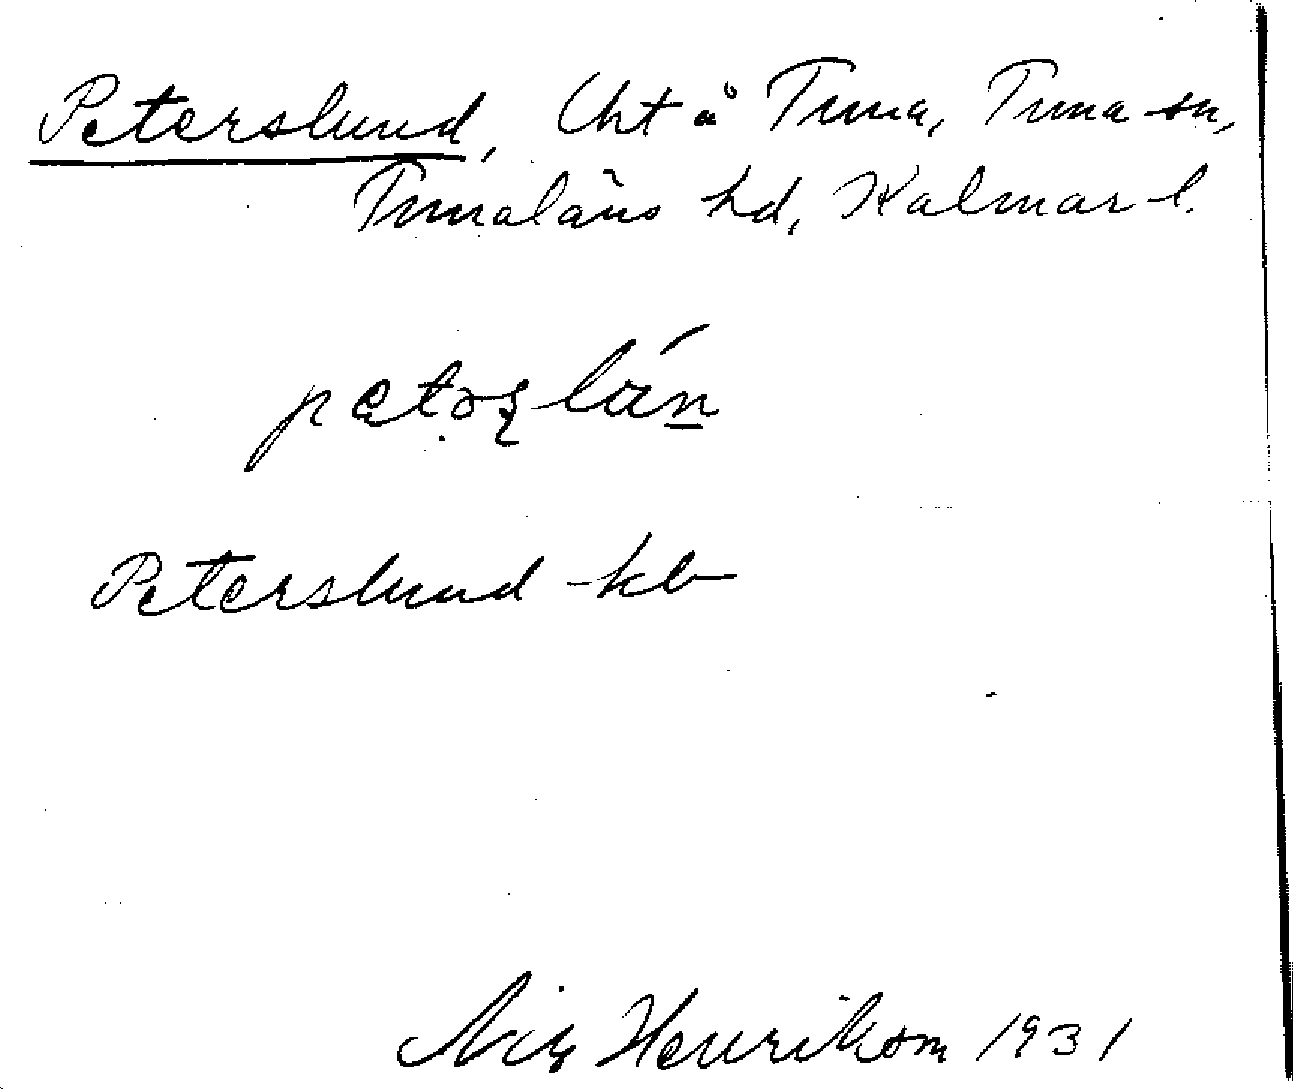 Peterslund, Lht å Tuna, Tuna sn,
Tunaläns hd, Kalmar l.
Peterslund kb
Nils Henrikson 1931